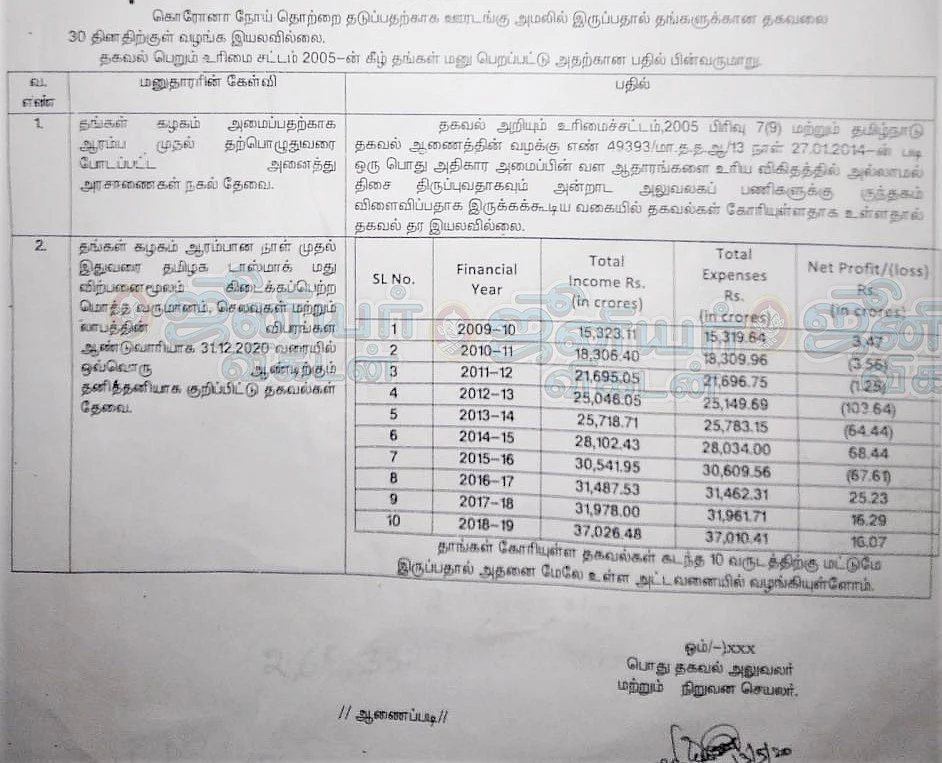 கொரோனா நோய் தொற்றை தடுப்பதற்காக ஊரடங்கு அமலில் இருப்பதால் தங்களுக்கான தகவலை
30 தினதிற்குள் வழங்க இயலவில்லை.
தகவல் பெறும் உரிமை சட்டம் 2005-ன் கீழ் தங்கள் மனு பெறப்பட்டு அதற்கான பதில் பின்வருமாறு.
வ. எண்
மனுதாரரின் கேள்வி
பதில்
1.
தங்கள் கழகம் அமைப்பதற்காக
ஆரம்ப முதல் தற்பொழுதுவரை
போடப்பட்ட அனைத்து
அரசாணைகள் நகல் தேவை.
தகவல் அறியும் உரிமைச்சட்டம்,2005 பிரிவு 7(9) மற்றும் தமிழ்நாடு
தகவல் ஆணைத்தின் வழக்கு எண் 49393/மா.த.த.ஆ/13 நாள் 27.01.2014-ன் படி
ஒரு பொது அதிகார அமைப்பின் வள ஆதாரங்களை உரிய விகிதத்தில் அல்லாமல்
திசை திருப்புவதாகவும் அன்றாட அலுவலகப் பணிகளுக்கு குந்தகம்
விளைவிப்பதாக இருக்கக்கூடிய வகையில் தகவல்கள் கோரியுள்ளதாக உள்ளதால்
தகவல் தர இயலவில்லை.
2.
தங்கள் கழகம் ஆரம்பான நாள் முதல்
இதுவரை தமிழக டாஸ்மாக் மது
விற்பனைமூலம் கிடைக்கப்பெற்ற
மொத்த வருமானம், செலவுகள் மற்றும்
லாபத்தின் விபரங்கள
ஆண்டுவாரியாக 31.12.2020 வரையில்
ஒவ்வொரு ஆண்டிற்கும்
தனித்தனியாக குறிப்பிட்டு தகவல்கள்
தேவை.
SL No. Financial Year Total Income Rs. (in crores) Total Expenses Rs. (in crores) Net Profit/(loss) Rs. (in crores)
1 2009-10 15,323.11 15,319.64 3.47
2 2010-11 18,306.40 18,309.96 (3.56)
3 2011-12 21,695.05 21,696.75 (1.25)
4 2012-13 25,046.05 25,149.69 (103.64)
5 2013-14 25,718.71 25,783.15 (64.44)
6 2014-15 28,102.43 28,034.00 68.44
7 2015-16 30,541.95 30,609.56 (67.61)
8 2016-17 31,487.53 31,462.31 25.23
9 2017-18 31,978.00 31,961.71 16.29
10 2018-19 37,026.48 37,010.41 16.07
தாங்கள் கோரியுள்ள தகவல்கள் கடந்த 10 வருடத்திற்கு மட்டுமே
இருப்பதால் அதனை மேலே உள்ள அட்டவனையில் வழங்கியுள்ளோம்.
ஜூனியர் விகடன்
ஒம்/-)xxx
பொது தகவல் அலுவலர்
மற்றும் நிறுவன செயலர்.
// ஆணைப்படி//
13/5/20